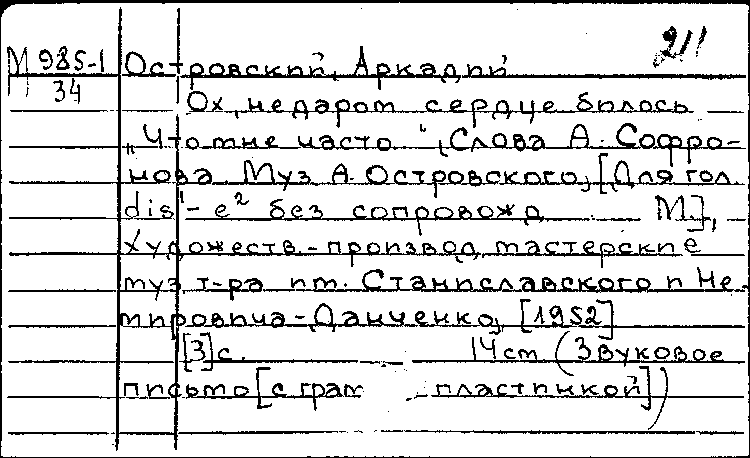 211
М 985-1 Островский, Аркадий
34
Ох, недаром сердце билось
„Что мне часто“, Слова А. Софро-
нова Муз А. Островского, [Для гол.
dis¹-e² без сопровожд М.],
Художеств.-производ. мастерские
муз. т-ра им. Станиславского и Не-
мировича-Данченко, [1952]
[3] с. 14 см (Звуковое
письмо [с грам пластинкой])